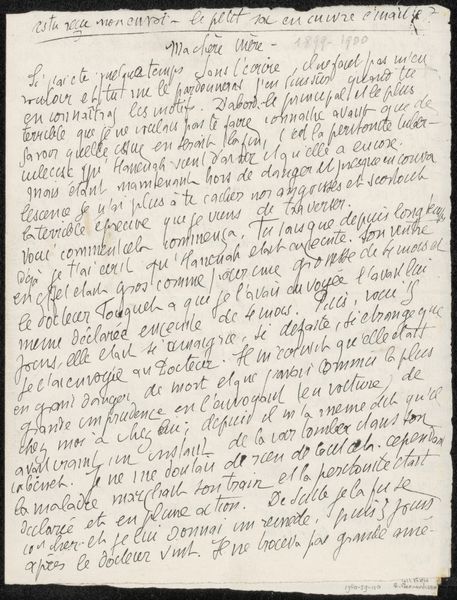 as tu reçu mon envoi - le petit en cuivre émaillé ?
Ma chère Mère - 1899-1900
Si j'ai été quelque temps sans t'écrire, il ne faut pas m'en
vouloir et tu me le pardonneras j'en suis sur quand tu
en connaîtras les motifs. D'abord le principal et le plus
terrible que je ne voulais pas te faire connaître avant que de
savoir quelle issue en serait la fin, c'est la péritonite tuber-
culeuse qu' Hannah vient d'avoir et qu'elle a encore.
mais étant maintenant hors de danger et presque en conva
lescence je n'ai plus à te cacher nos angoisses et surtout
la terrible épreuve que je viens de traverser.
Voici comment cela commença. Tu sais que depuis longtemps
déjà je t'ai écrit qu'Hannah était Son ventre
en effet était gros comme pour une grossesse de 4 mois et
le docteur à qui je l'avais envoyée l'avait lui
même déclarée enceinte de 4 mois. Puis, voici 15
jours, elle était si amaigrie, si défaite, si étrange que
je l'ai envoyée au Docteur. Il m'écrivit qu'elle était
en grand danger de mort et que j'avais commis la plus
grande imprudence en l'envoyant (en voiture) de
chez moi à chez lui; depuis il m'a même dit qu'il
avait craint un instant de la voir tomber dans son
cabinet. Je ne me doutais de rien de tout cela. cependant
la maladie marchait son train et la péritonite était
déclarée et en pleine action. De suite je la fis se
coucher et je lui donnai un remède. puis 3 jours
après le docteur vint. Il ne trouva pas grande amé-